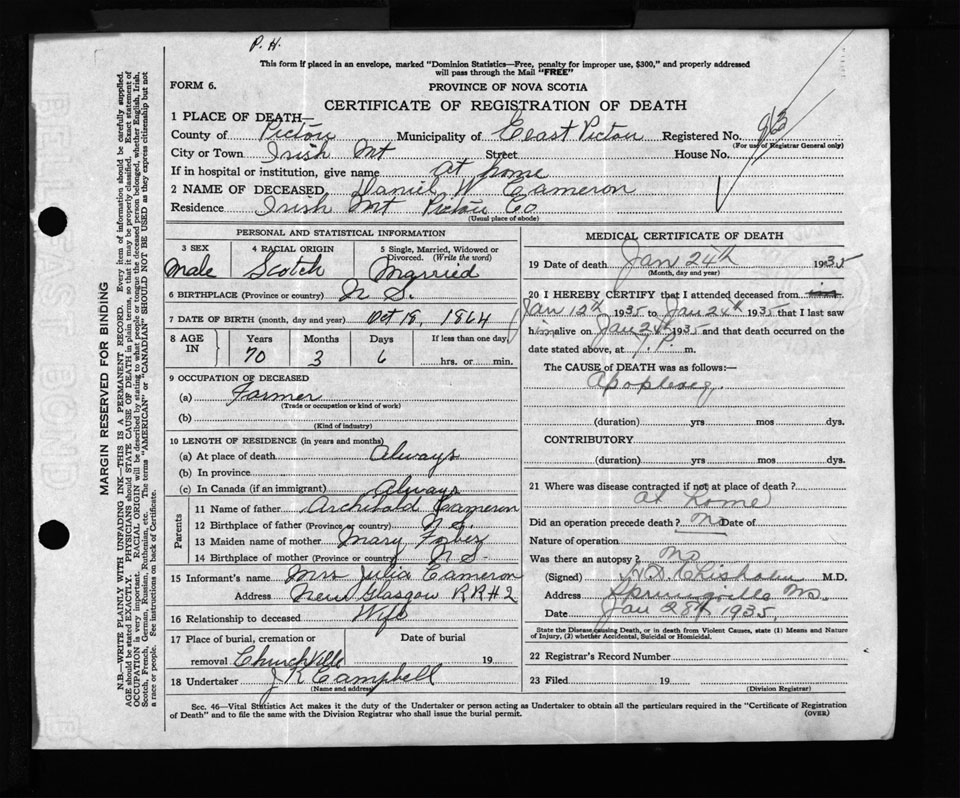 P. H.
This form if placed in an envelope, marked "Dominion Statistics—Free, penalty for improper use, $300," and properly addressed
will pass through the Mail "FREE"
FORM 6.
PROVINCE OF NOVA SCOTIA
CERTIFICATE OF REGISTRATION OF DEATH
1 PLACE OF DEATH—
County of Pictou Municipality of East Pictou Registered No. 93
(For use of Registrar General only)
City or Town Irish Mt Street House No.
If in hospital or institution, give name at home
2 NAME OF DECEASED Daniel W Cameron
Residence Irish Mt Pictou Co
(Usual place of abode)
PERSONAL AND STATISTICAL INFORMATION
3 SEX 4 RACIAL ORIGIN 5 Single, Married, Widowed or
Divorced. (Write the word)
Male Scotch Married
6 BIRTHPLACE (Province or country) N S.
7 DATE OF BIRTH (month, day and year) Oct 18, 1864
8 AGE IN Years Months Days If less than one day
70 3 6 hrs. or min.
9 OCCUPATION OF DECEASED
(a) Farmer
(Trade or occupation or kind of work)
(b)
(Kind of industry)
10 LENGTH OF RESIDENCE (in years and months)
(a) At place of death Always
(b) In province
(c) In Canada (if an immigrant) Always
Parents
11 Name of father Archibald Cameron
12 Birthplace of father (Province or country) N S.
13 Maiden name of mother Mary Forbes
14 Birthplace of mother (Province or country) N S.
15 Informant's name Mrs Julia Cameron
Address New Glasgow RR#2
16 Relationship to deceased Wife
17 Place of burial, cremation or Date of burial
removal Churchville 19
18 Undertaker J R Campbell
(Name and address)
MEDICAL CERTIFICATE OF DEATH
19 Date of death Jan 24th 1935
(Month, day and year)
20 I HEREBY CERTIFY that I attended deceased from
Jan 12th 1935 to Jan 24th 1935 that I last saw
him alive on Jan 24th 1935 and that death occurred on
date stated above, at 7 P. m.
The CAUSE of DEATH was as follows:—
Apoplexy
(duration) yrs mos dys.
CONTRIBUTORY
(duration) yrs mos dys.
21 Where was disease contracted if not at place of death?
at Home
Did an operation precede death? No Date of
Nature of operation
Was there an autopsy? No
(Signed) Chisholm M.D.
Address Springville NS.
Date Jan 28th 1935.
State the Disease causing Death, or in death from Violent Causes, state (1) Means and Nature
of Injury, (2) whether Accidental, Suicidal or Homicidal.
22 Registrar's Record Number
23 Filed 19
(Division Registrar)
Sec. 46—Vital Statistics Act makes it the duty of the Undertaker or person acting as Undertaker to obtain all the particulars required in the "Certificate of Registration
of Death" and to file the same with the Division Registrar who shall issue the burial permit. (OVER)
MARGIN RESERVED FOR BINDING
N.B.—WRITE PLAINLY WITH UNFADING INK—THIS IS A PERMANENT RECORD. Every item of information should be carefully supplied.
AGE should be stated EXACTLY. PHYSICIANS should STATE CAUSE OF DEATH in plain terms, so that it may be properly classified. Exact statement of
OCCUPATION is very important. RACIAL ORIGIN will be described by stating to what people or tongue the deceased person belonged, whether English, Irish,
Scotch, French, German, Russian, Ruthenian, etc. The terms "AMERICAN" or "CANADIAN" SHOULD NOT BE USED as they express citizenship but not
a race or people. See instructions on back of Certificate.